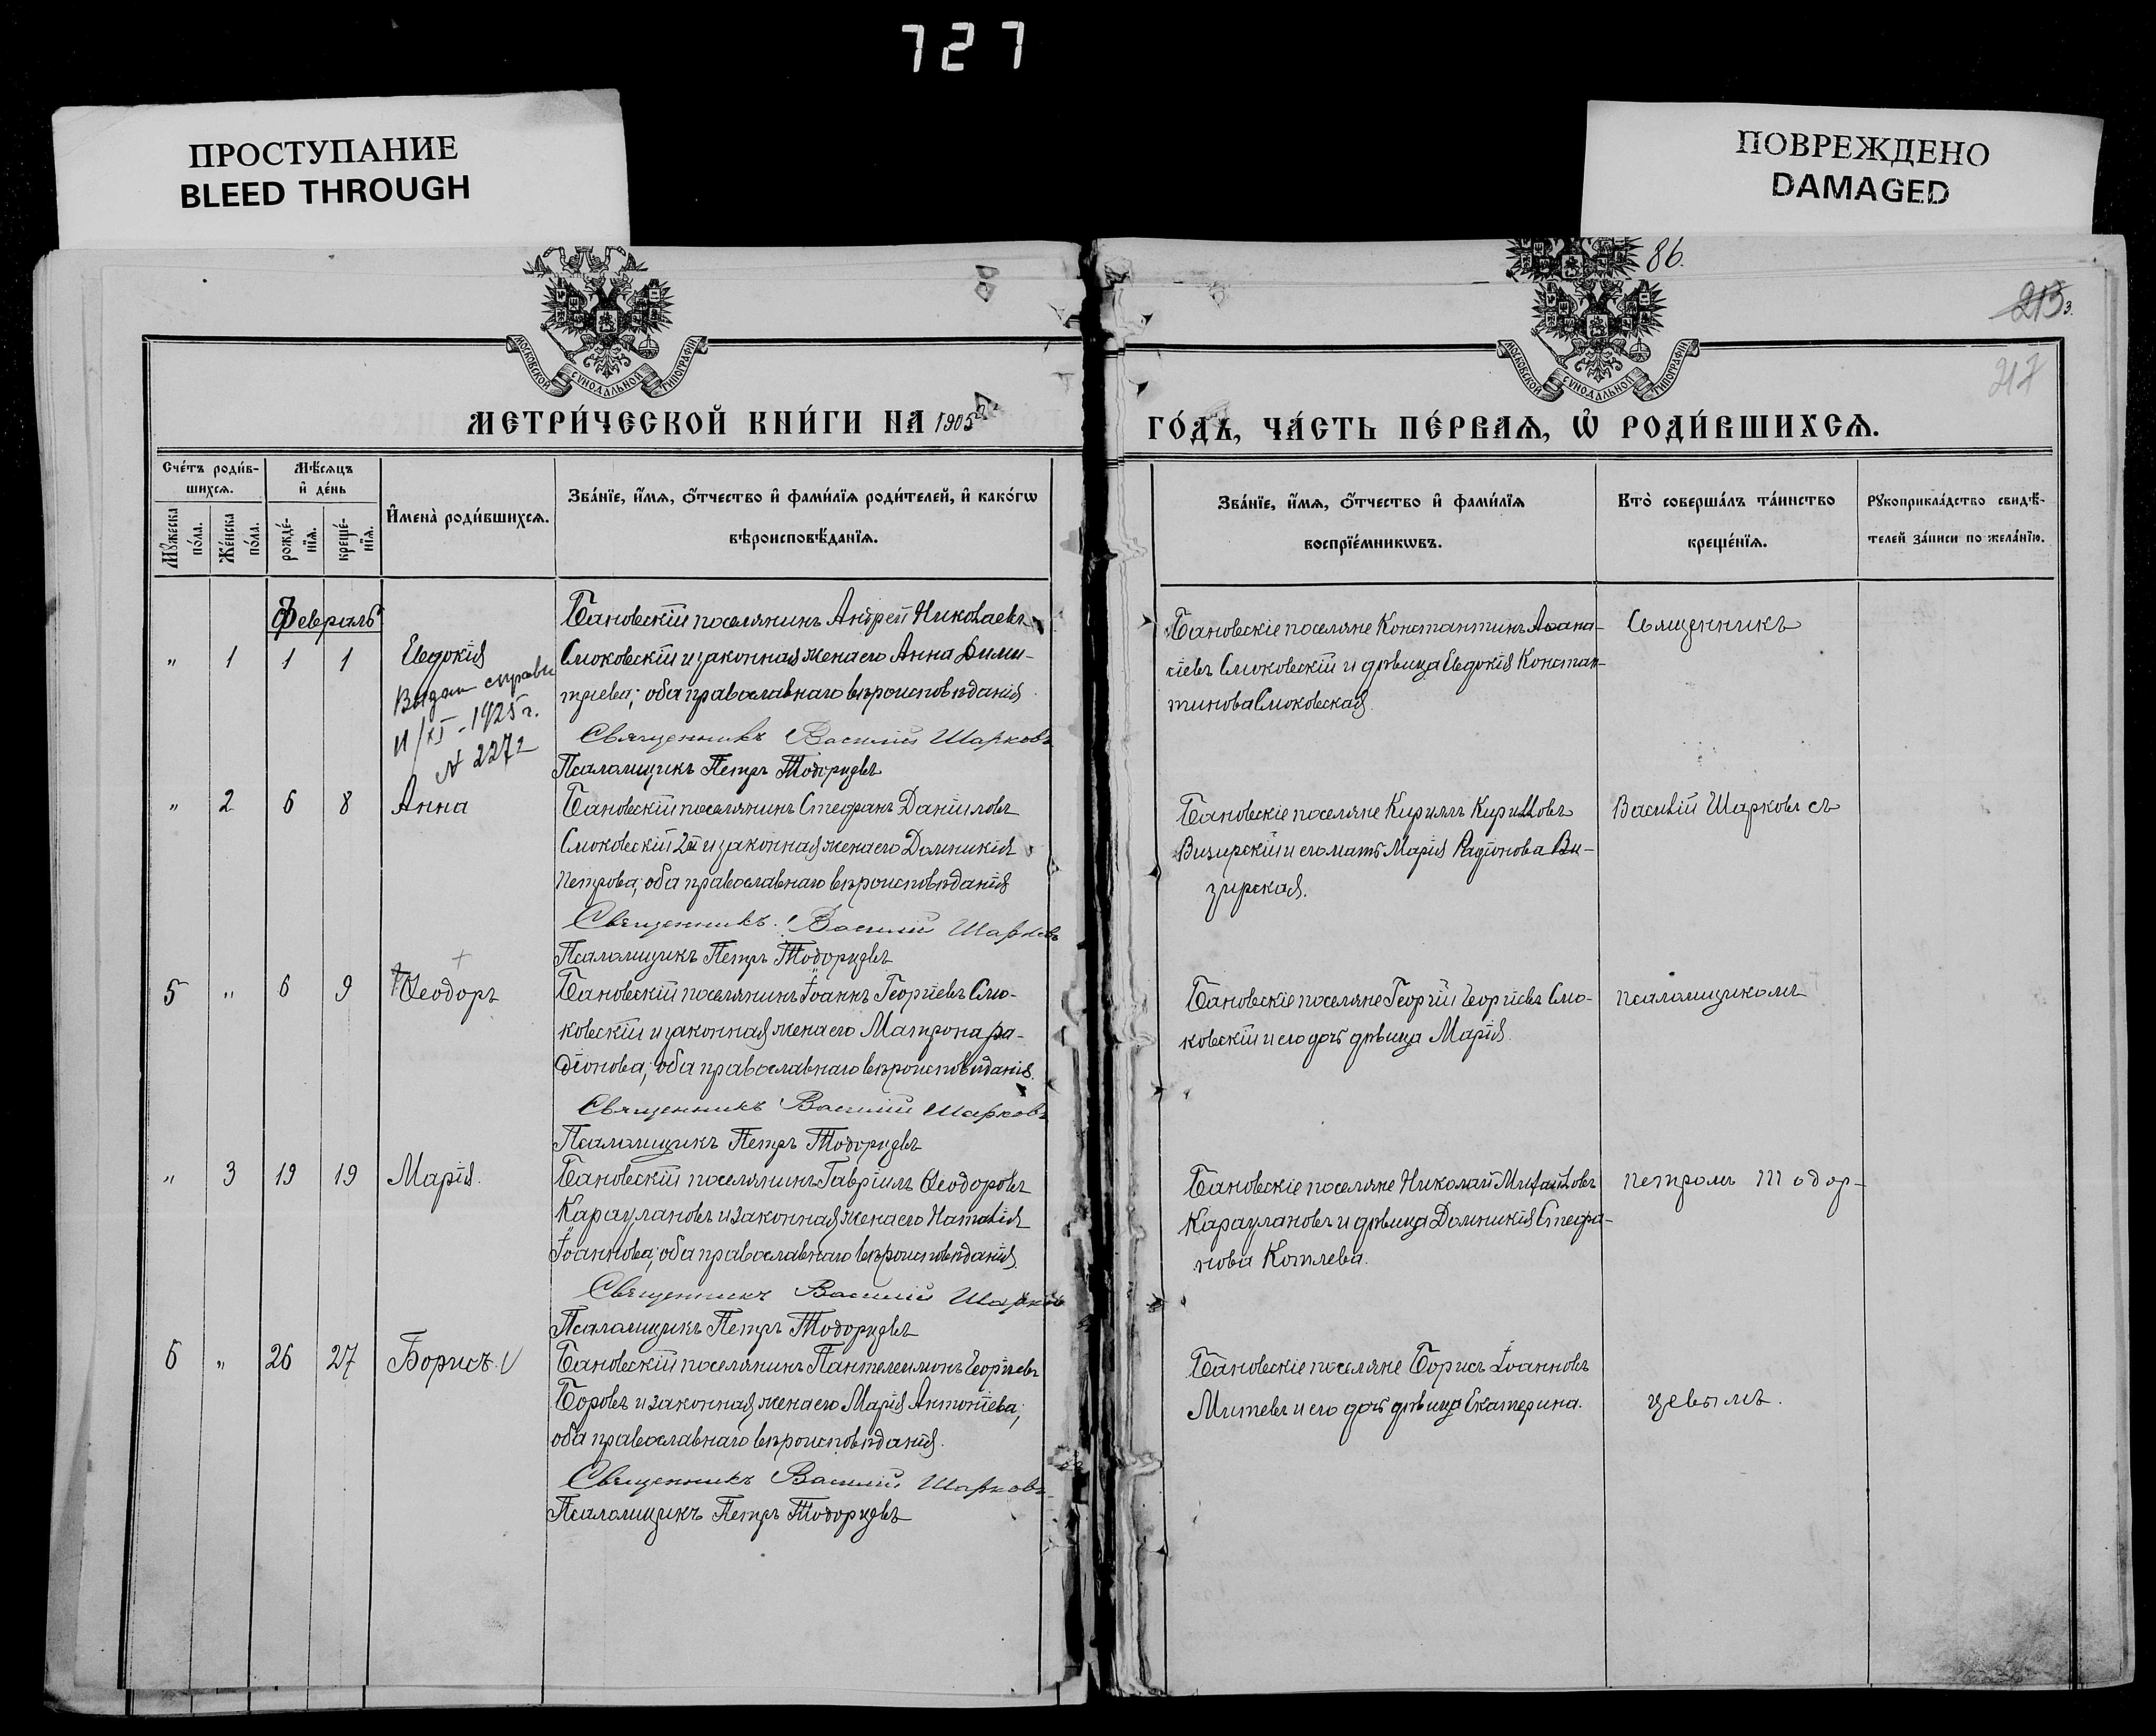 727
ПРОСТУПАНИЕ
BLEED THROUGH
ПОВРЕЖДЕНО
DAMAGED
86.
213
3.
217
МОСКОВСКОЙ СѴНОДАЛЬНОЙ ТИПОГРАФІИ
МОСКОВСКОЙ СѴНОДАЛЬНОЙ ТИПОГРАФІИ
МЕТРИ́ЧЕСКОЙ КНИ́ГИ НА 1905
ГО́ДЪ, ЧА́СТЬ ПЕ́РВАѦ, Ѡ҆ РОДИ́ВШИХСѦ.
Сче́тъ роди́в-
шихсѧ.
Мѣ́сѧцъ
и҆ де́нь
Мꙋ́жеска
по́ла.
Же́нска
по́ла.
рожде́-
нїѧ.
креще́-
нїѧ.
И҆мена̀ роди́вшихсѧ.
Зва́нїе, и҆́мѧ, ѻ҆́тчество и҆ фами́лїѧ роди́телей, и҆ како́гѡ
вѣроисповѣ́данїѧ.
Зва́нїе, и҆́мѧ, ѻ҆́тчество и҆ фами́лїѧ
воспрїе́мникѡвъ.
Кто̀ соверша́лъ та́инство
креще́нїѧ.
Рꙋкоприкла́дство свидѣ́-
телей за́писи по жела́нїю.
Февраль
" 1 1 1 Евдокія
Выдан справк
11/XI-1925 г.
N 2272
Бановскій поселянинъ Андрей Николаевъ
Смоковскій и законная жена его Анна Дими-
тріева; оба православнаго вѣроисповѣданія
Священникъ Василій Шарковъ
Псаломщикъ Петръ Тодорцевъ
Бановскіе поселяне Константинъ Аѳана-
сіевъ Смоковскій и дѣвица Евдокія Констан-
тинова Смоковская.
Священникъ
" 2 6 8 Анна
Бановскій поселянинъ Стефанъ Даніиловъ
Смоковскій 2й и законная жена его Домникія
Петрова; оба православнаго вѣроисповѣданія
Священникъ Василій Шарковъ
Псаломщикъ Петръ Тодорцевъ
Бановскіе поселяне Кириллъ Кирилловъ
Визирскій и его мать Марія Радіонова Ви-
зирская.
Василій Шарковъ съ
5 " 6 9 Ѳеодоръ
Бановскій поселянинъ Іоаннъ Георгіевъ Смо-
ковскій и законная жена его Матрона Ра-
діонова; оба православнаго вѣроисповѣданія.
Священникъ Василій Шарковъ
Псаломщикъ Петръ Тодорцевъ
Бановскіе поселяне Георгій Георгіевъ Смо-
ковскій и его дочь дѣвица Марія.
псаломщикомъ
" 3 19 19 Марія.
Бановскій поселянинъ Гавріилъ Ѳеодоровъ
Караулановъ и законная жена его Наталія
Іоаннова; оба православнаго вѣроисповѣданія.
Священникъ Василій Шарковъ
Псаломщикъ Петръ Тодорцевъ
Бановскіе поселяне Николай Михайловъ
Караулановъ и дѣвица Домникія Стефа-
нова Котлева.
Петромъ Тодор-
6 " 26 27 Борисъ. V
Бановскій поселянинъ Пантелеимонъ Георгіевъ
Боровъ и законная жена его Марія Антоніева;
оба православнаго вѣроисповѣданія.
Священникъ Василій Шарковъ
Псаломщикъ Петръ Тодорцевъ
Бановскіе поселяне Борисъ Іоанновъ
Митевъ и его дочь дѣвица Екатерина.
цевымъ.